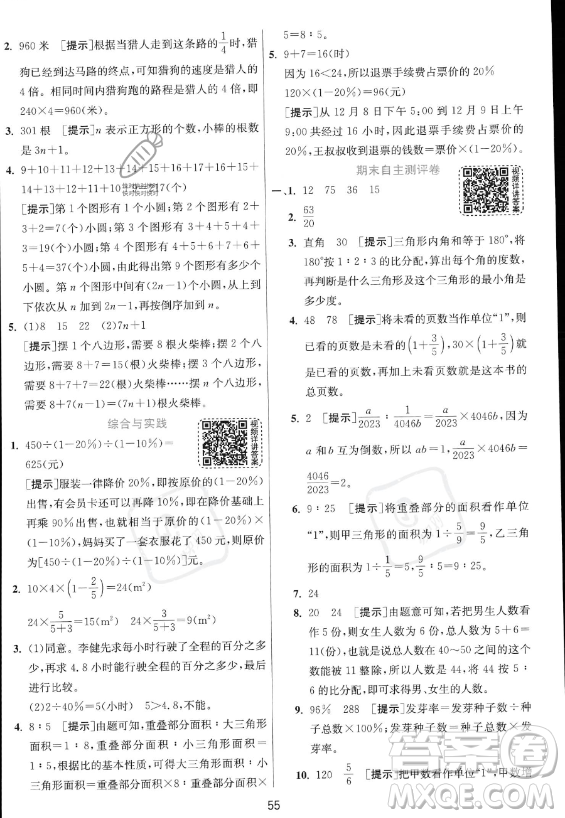 2. 960 米 [提示]根据当猎人走到这条路的1/4时,猎
狗已经到达马路的终点,可知猎狗的速度是猎人的
4 倍,在相同时间猎狗跑的路程是猎人的 4 倍,即
240×4=960(米)。
3. 301 根 [提示]n 表示正方形的个数,小棒的根数
是 3n+1。
4. 9+10+11+12+13+14+15+16+17+16+
[提示]第 1 个图形有 1 个小圆;第 2 个图形有 2+
3+2=7(个)小圆;第 3 个图形有 3+4+5+4+
3=19(个)小圆;第 4 个图形有 4+5+6+7+6+
5+4=37(个)小圆;第 n 个图形有多少个小
圆,第 n 个图形中间一行有 2n-1(个)小圆,往上往
下依次从 n 到 2n-1,再到 n。
5. (1)8 15 22 (2)7n+1
[提示]摆 1 个八边形,需要 8 根火柴棒;摆 2 个八边形,
需要 8+7=15(根)火柴棒;摆 3 个八边形,
需要 8+7+7=22(根)火柴棒……摆 n 个八边形,
需要 8+7(n-1)=7n+1(根)火柴棒。
综合与实践
1. 450÷(1-20%)÷(1-10%)=
625(元)
[提示]服装一律降价 20%,即打八折
出售,有会员卡还可以再降 10%,即在降价基础上
再乘 90%出售,也就相当于原价的(1-20%)×
(1-10%),妈妈买了一套衣服花了 450 元,则原价
为[450÷(1-20%)÷(1-10%)]元。
2. 10×4×(1-2/5)=24(m²)
24×5/(5+3)=15(m²) 24×3/(5+3)=9(m²)
3. (1)同意。李健先求每小时行驶了全程的百分之多
少,再求 4.8 小时能行驶全程的百分之多少,最后
进行比较。
(2)2÷40%=5(小时) 5>4.8,不能。
4. 8∶5 [提示]由题可知,重叠部分面积∶大三角形
面积=1∶8,重叠部分面积∶小三角形面积=1∶5,
大三角形面积=重叠部分面积×8∶重叠部分面积×
5=8∶5。
5. 9+7=16(时)
因为 16<24,所以退票手续费占票价的 20%
120×(1-20%)=96(元)
[提示]从 12 月 8 日下午 5:00 到 12 月 9 日上午
9:00 共经过 16 小时,所以退票手续费占票价的
20%,王叔叔退票的钱数=票价×(1-20%)。
期末自主测评卷
一、1. 12 75 36 15
2. 63/20
3. 直角 30 [提示]三角形内角和等于 180°,将
180°按 1∶2∶3 的比分配,算出每个角的度数,
再判断是什么三角形及这个三角形的最小角是
多少度。
4. 48 78 [提示]将未看的页数看作单位“1”,则
已看的页数为(1+3/5),30×(1+3/5)就是这本书的
总页数。
5. 2 [提示]a/2023∶1/4046b=a/2023×4046b,因为
a 和 b 互为倒数,所以 ab=1,a/2023×4046b=
4046/2023=2。
6. 9∶25 [提示]将重叠部分的面积看作单位
“1”,则甲三角形的面积为 1÷5/9=9/5,乙三角
形的面积为 1÷
7. 24
8. 20 24 [提示]由题意可知,若把男生人数看
作 5 份,则女生人数为 6 份,总人数为 5+6=
11(份),也就是说,总人数在 40~50,且总人数
能被 11 整除,所以,总人数为 44 人,再按 5∶6
的比分配,即可求出男、女生的人数。
9. 96% 288 [提示]发芽率=发芽种子数÷种
子总数×100%;发芽种子数=种子总数×
发芽率。
10. 120 5/6 [提示]把甲数看作单位“1”,甲数增
55